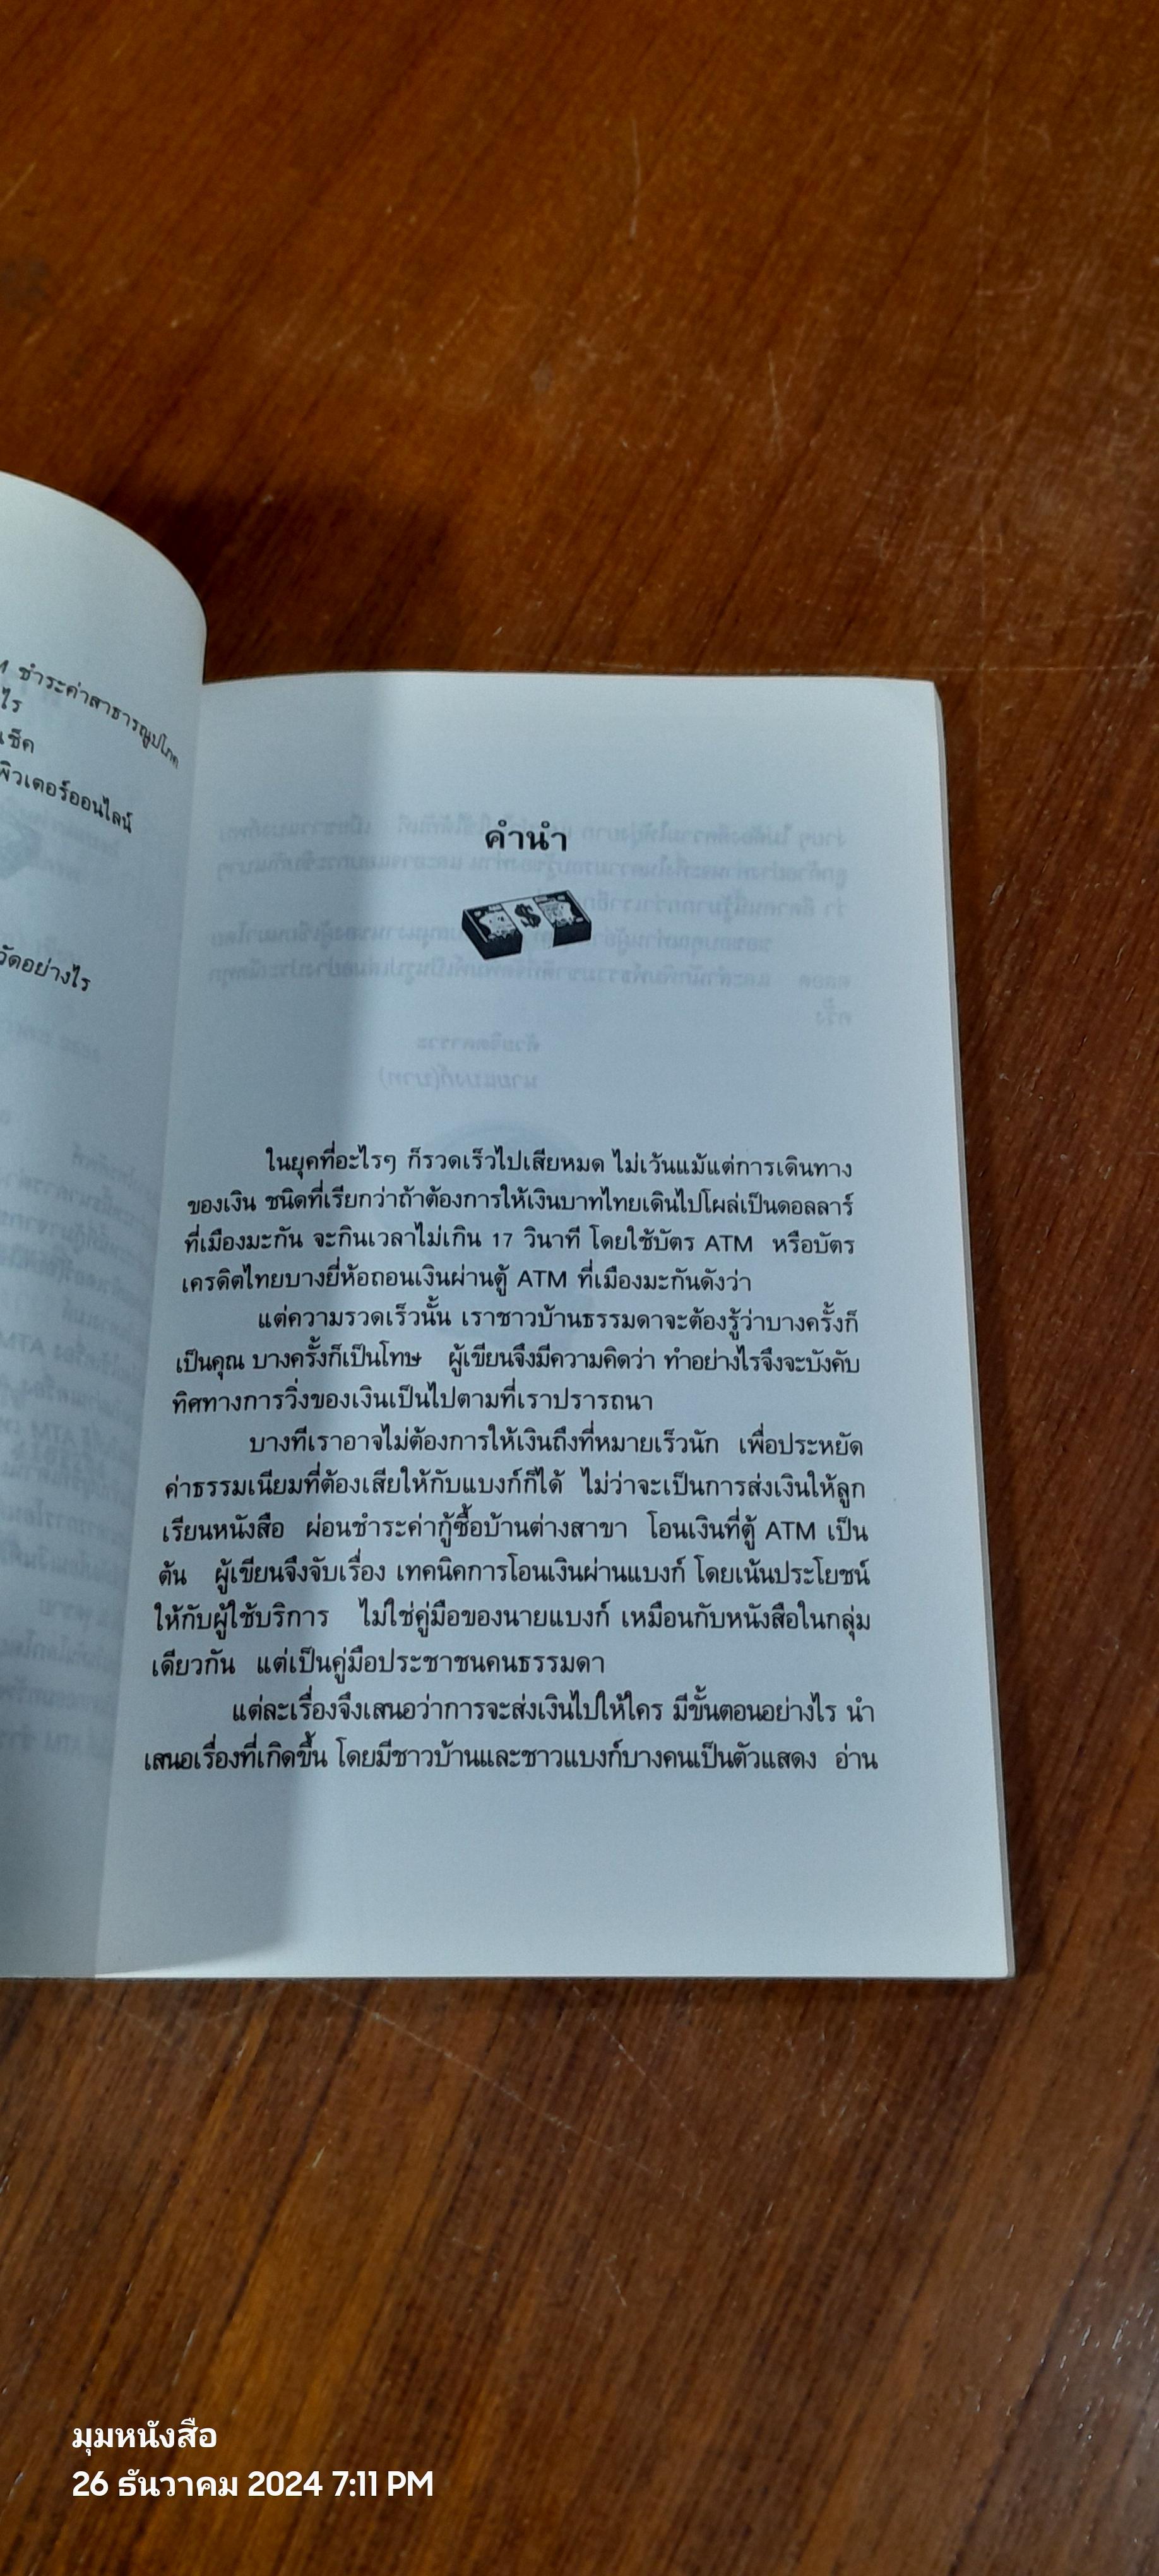 ชำระค่าสาธารณูปโภค
ไร
เช็ค
พิวเตอร์ออนไลน์
วัดอย่างไร
คำนำ
$
ในยุคที่อะไรๆ ก็รวดเร็วไปเสียหมด ไม่เว้นแม้แต่การเดินทาง
ของเงิน ชนิดที่เรียกว่าถ้าต้องการให้เงินบาทไทยเดินไปโผล่เป็นดอลลาร์
ที่เมืองมะกัน จะกินเวลาไม่เกิน 17 วินาที โดยใช้บัตร ATM หรือบัตร
เครดิตไทยบางยี่ห้อถอนเงินผ่านตู้ ATM ที่เมืองมะกันดังว่า
แต่ความรวดเร็วนั้น เราชาวบ้านธรรมดาจะต้องรู้ว่าบางครั้งก็
เป็นคุณ บางครั้งก็เป็นโทษ ผู้เขียนจึงมีความคิดว่า ทำอย่างไรจึงจะบังคับ
ทิศทางการวิ่งของเงินเป็นไปตามที่เราปรารถนา
บางทีเราอาจไม่ต้องการให้เงินถึงที่หมายเร็วนัก เพื่อประหยัด
ค่าธรรมเนียมที่ต้องเสียให้กับแบงก์ก็ได้ ไม่ว่าจะเป็นการส่งเงินให้ลูก
เรียนหนังสือ ผ่อนชำระค่ากู้ซื้อบ้านต่างสาขา โอนเงินที่ตู้ ATM เป็น
ต้น ผู้เขียนจึงจับเรื่อง เทคนิคการโอนเงินผ่านแบงก์ โดยเน้นประโยชน์
ให้กับผู้ใช้บริการ ไม่ใช่คู่มือของนายแบงก์ เหมือนกับหนังสือในกลุ่ม
เดียวกัน แต่เป็นคู่มือประชาชนคนธรรมดา
แต่ละเรื่องจึงเสนอว่าการจะส่งเงินไปให้ใคร มีขั้นตอนอย่างไร นำ
เสนอเรื่องที่เกิดขึ้น โดยมีชาวบ้านและชาวแบงก์บางคนเป็นตัวแสดง อ่าน
มุมหนังสือ
26 ธันวาคม 2024 7:11 PM